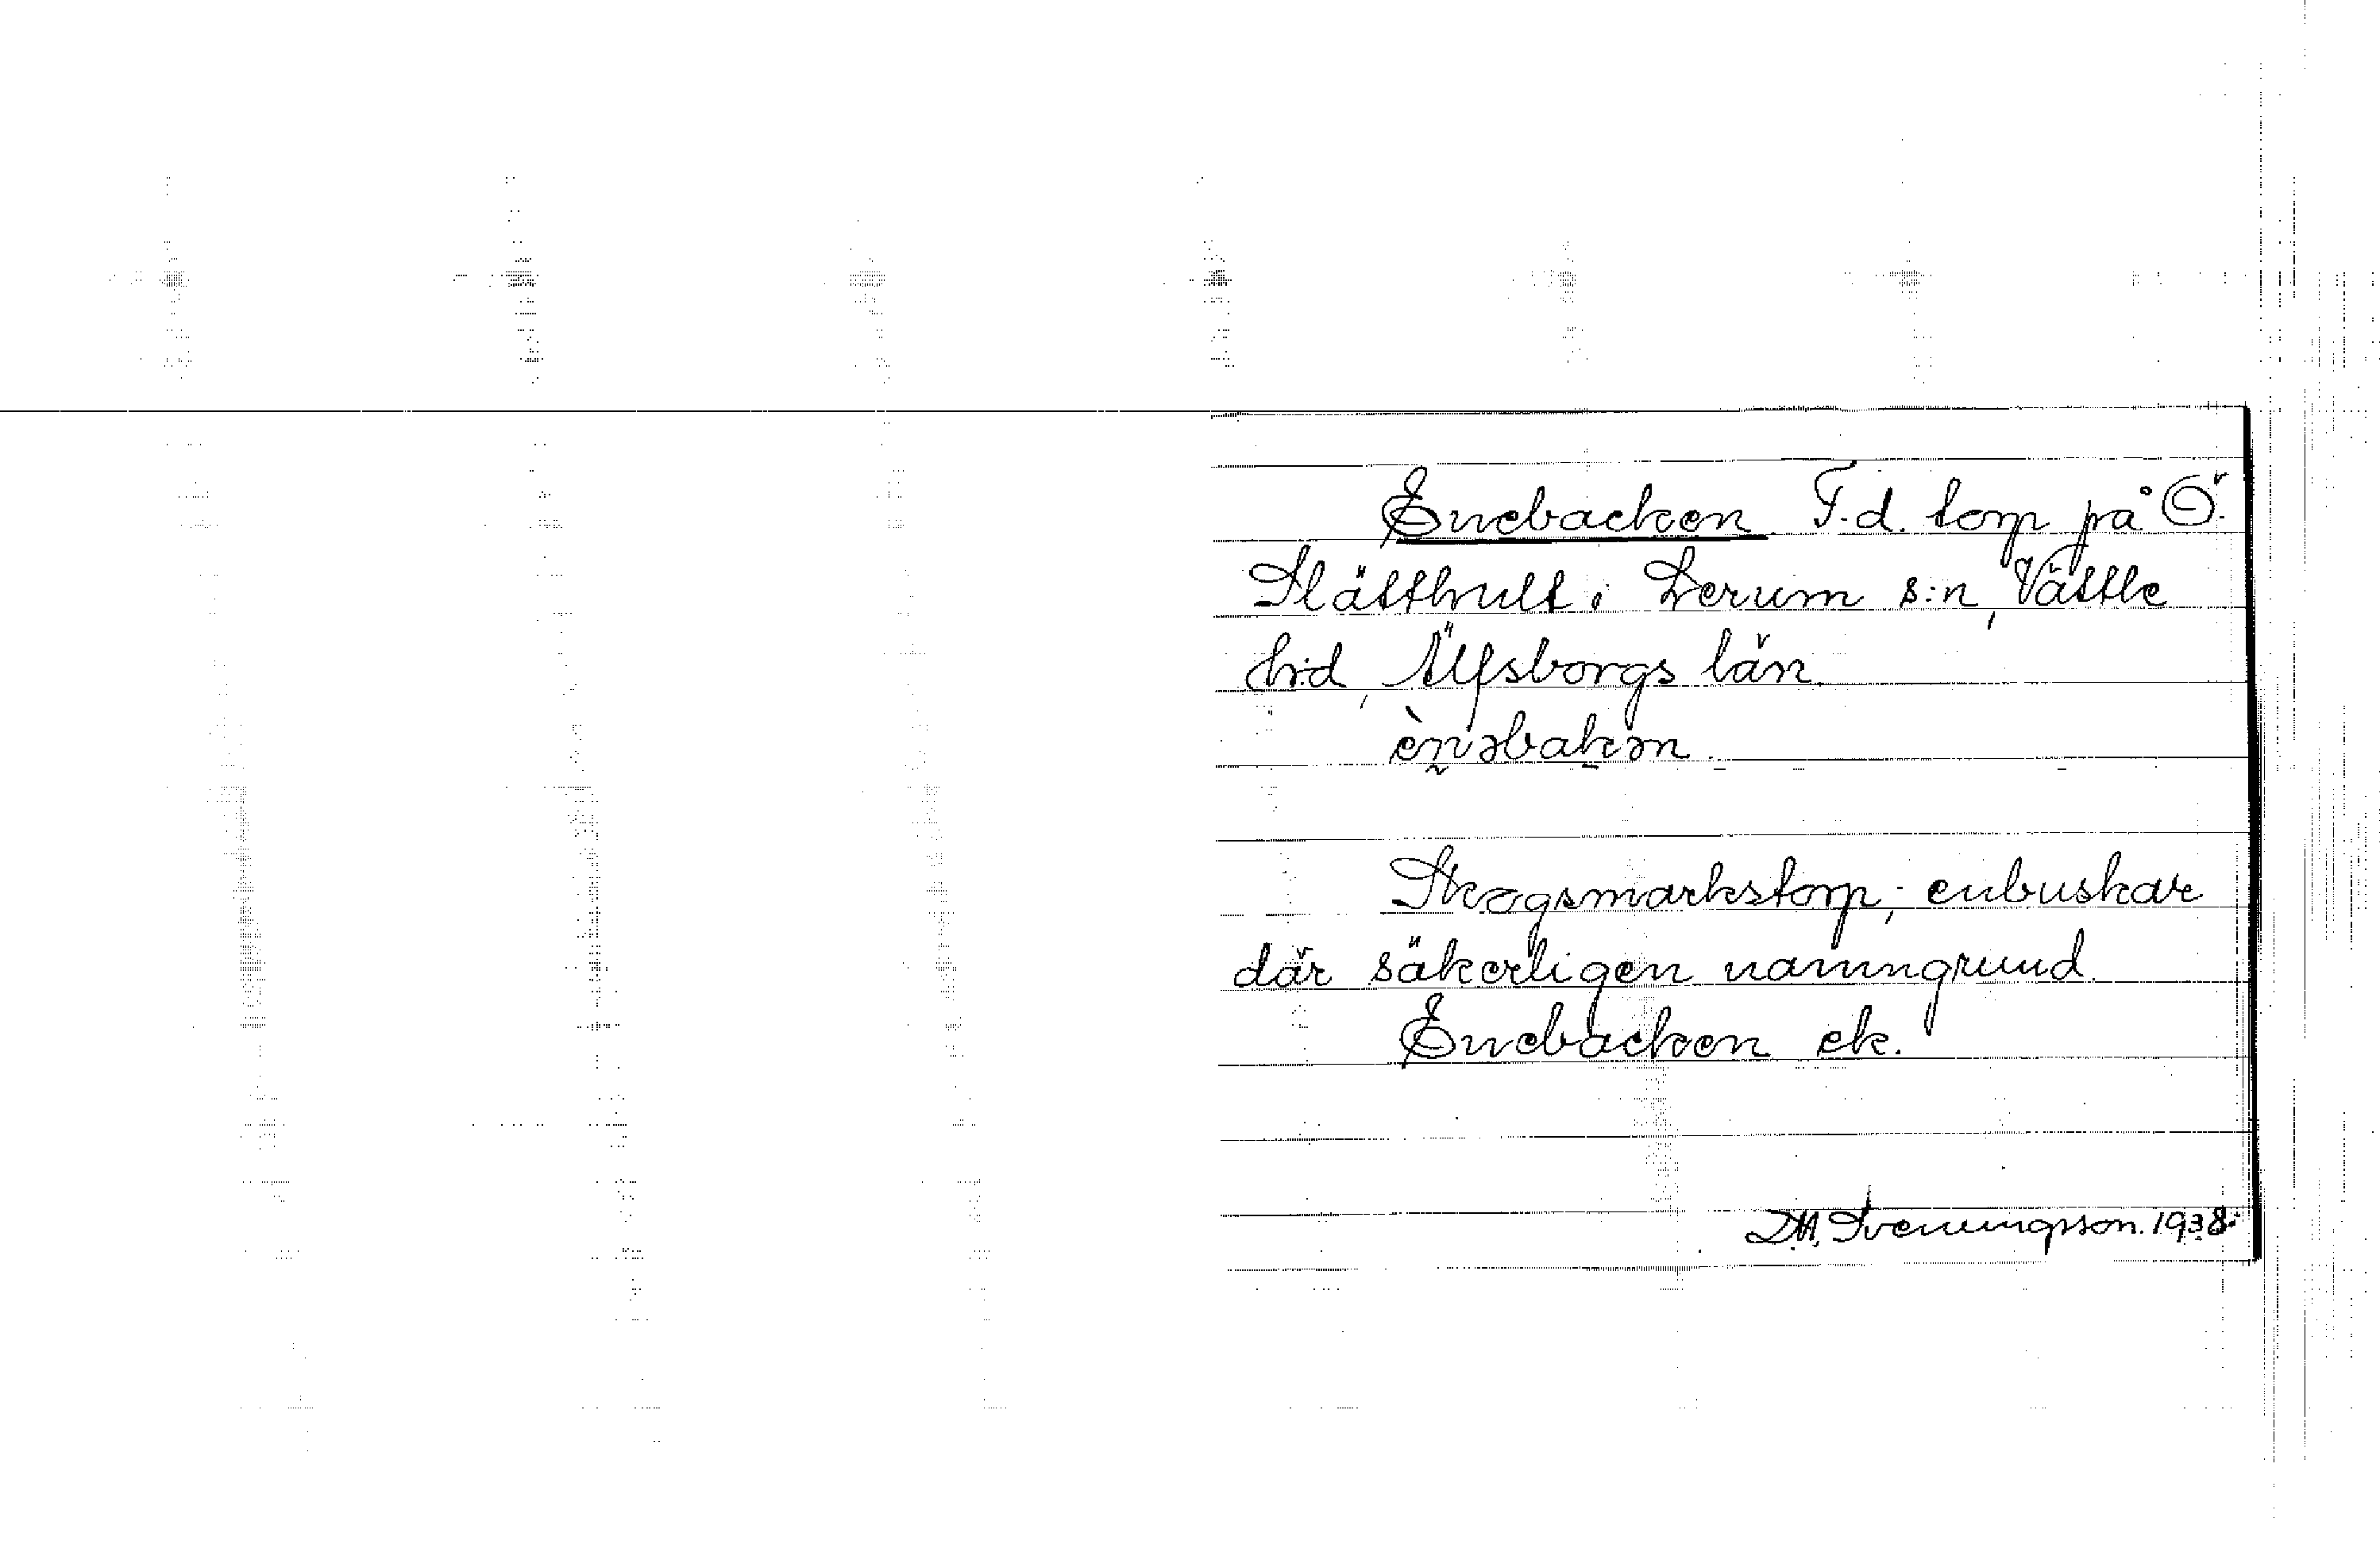 Enebacken F.d. torp på Ö.
Slätthult i Lerum s:n, Vättle
hd, Älfsborgs län.
ènəbakən.
Skogsmarkstorp; enbuskar
där säkerligen namngrund.
Enebacken ek.
D.A. Sveningsson. 1938.